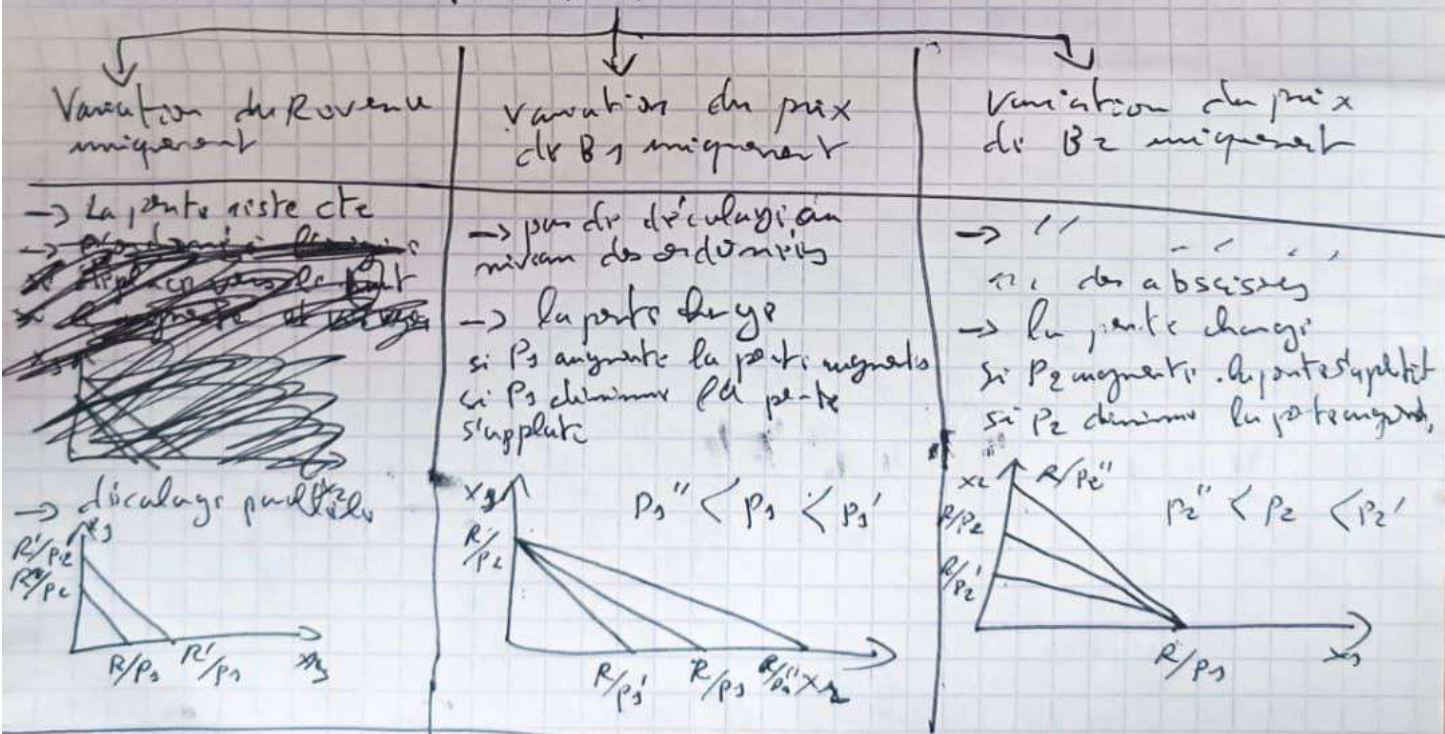 Variation du Revenue
uniquement
→ La pente reste cte
→ décalage parallèle
R'/p2
R/p2
R/p1
R'/p1
variation du prix
de B1 uniquement
→ pas de décalage au
niveau des ordonnées
→ la pente change
si P1 augmente la pente augmente
si P1 diminue la pente
s'applatit
x1
p1'' < p1 < p1'
R/p2
R/p1'
R/p1
R/p1''
x2
Variation du prix
de B2 uniquement
→ //
des abscisses
→ la pente change
si P2 augmente la pente s'applatit
si P2 diminue la pente augmente
x2
R/p2''
p2'' < p2 < p2'
R/p2
R/p2'
R/p1
x1